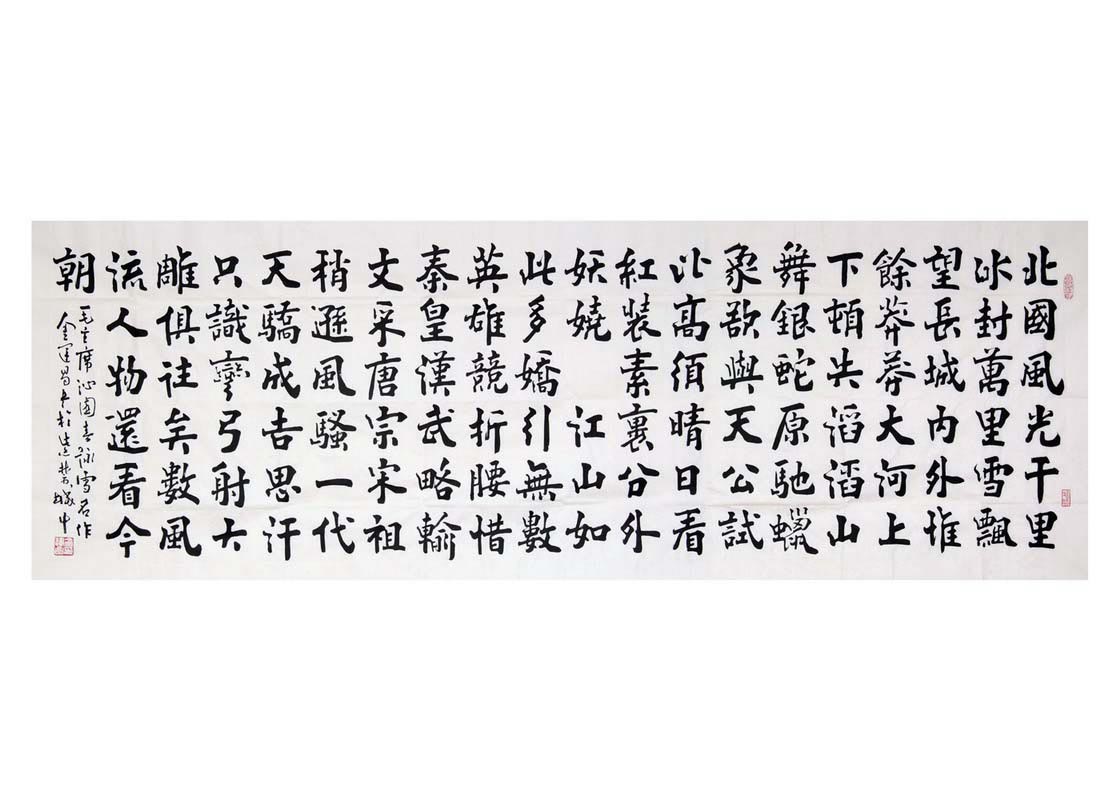 北國風光千里
冰封萬里雪飄
望長城內外惟
餘莽莽大河上
下頓失滔滔山
舞銀蛇原馳蠟
象欲與天公試
比高須晴日看
紅裝素裹分外
妖嬈 江山如
此多嬌引無數
英雄競折腰惜
秦皇漢武略輸
文采唐宗宋祖
稍遜風騷一代
天驕成吉思汗
只識彎弓射大
雕俱往矣數風
流人物還看今
朝
毛主席沁園春詠雪名作
金運昌書於